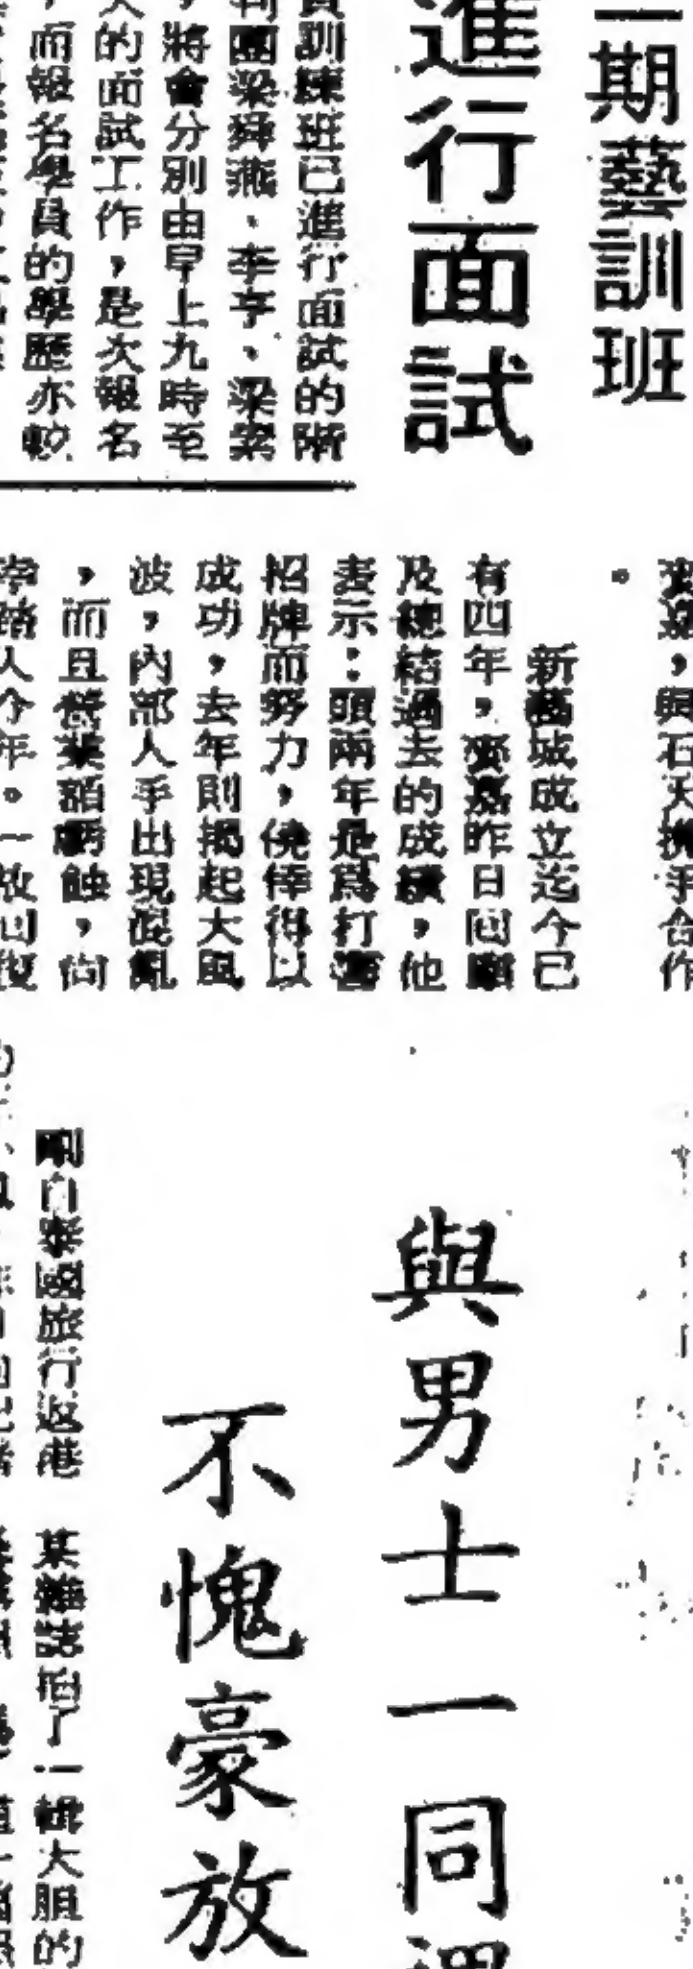 期藝訓班
進行面試
訓練班已進行面試的階
團梁舜燕、李亨、梁
,將會分別由早上九時至
的面試工作,是次報名
,而報名學員的學歷亦較
,與石天攜手合作
。
新藝城成立迄今已
有四年,麥嘉昨日回顧
及總結過去的成績,他
表示:頭兩年是爲打響
招牌而努力,僥倖得以
成功,去年則揭起大風
波,內部人手出現混亂
,而且營業額虧蝕,尚
踏入今年。一
與男士一同
不愧豪放
剛自泰國旅行返港
某雜誌拍了一輯大胆的